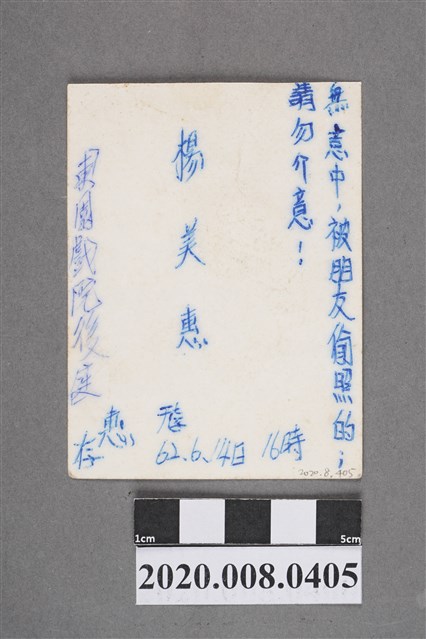 無意中,被朋友偷照的;
請勿介意!
楊美惠
62.6.14日 16時
東園戲院後座
惠存
2020.8.405
1cm
5cm
2020.008.0405